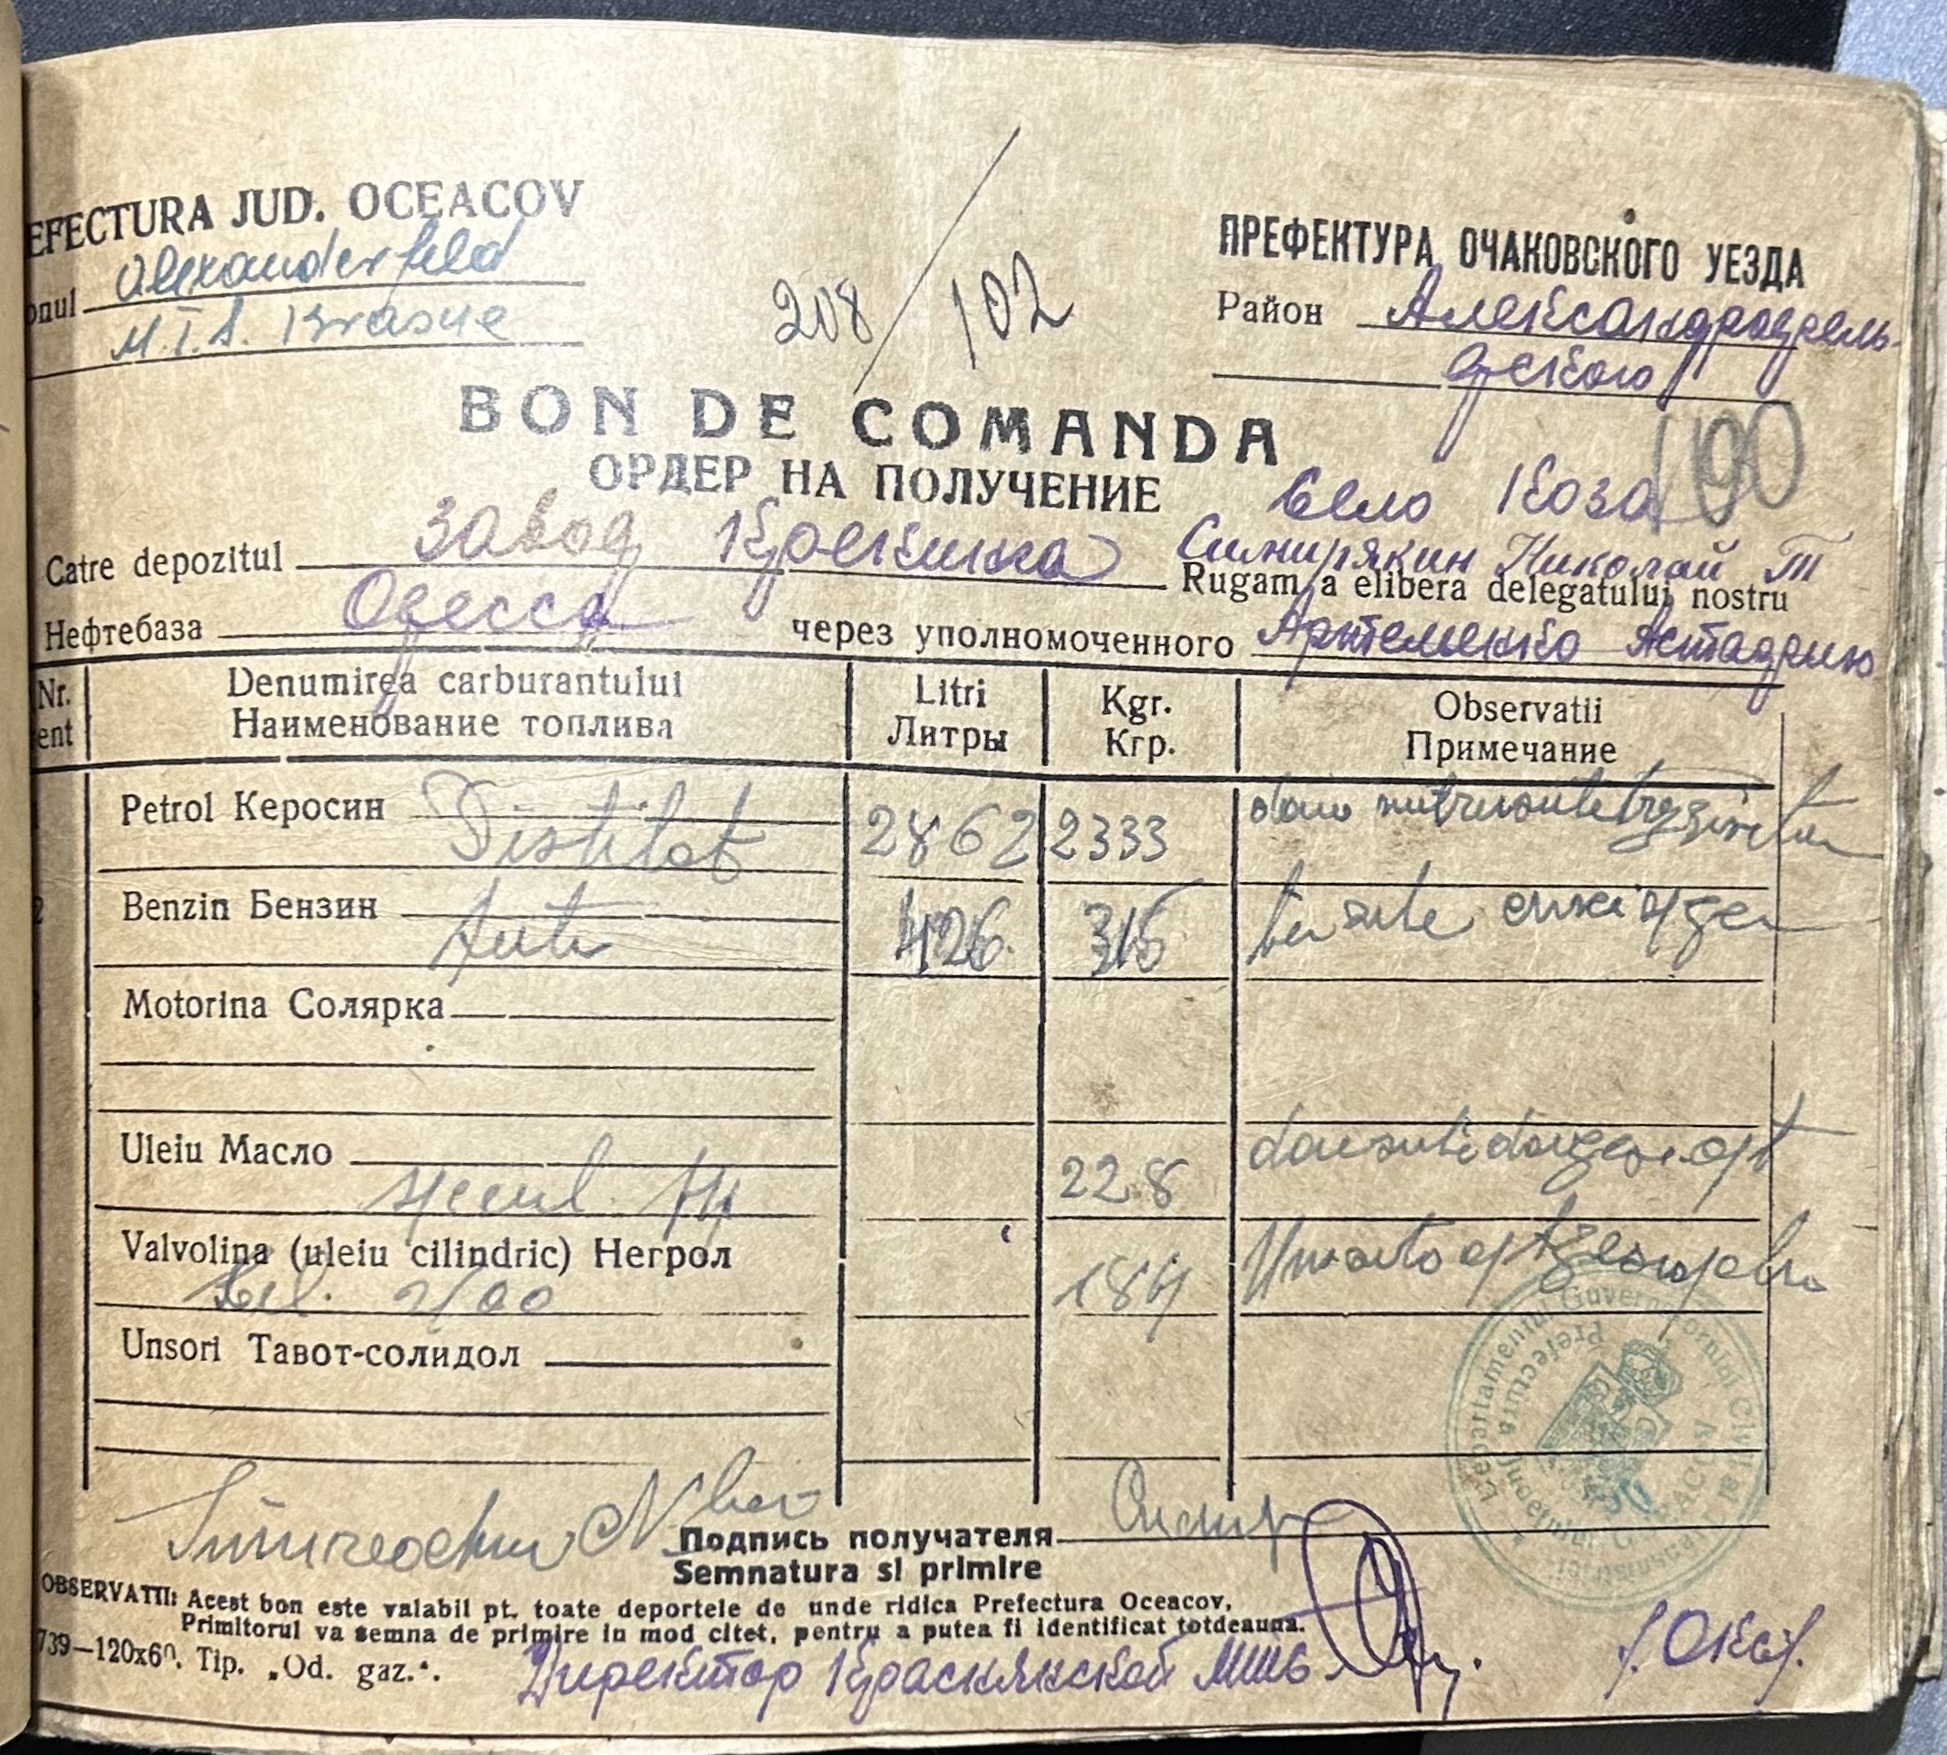 EFECTURA JUD. OCEACOV
onul Alexanderfeld
M.T.S. Krasne
208/102
ПРЕФЕКТУРА ОЧАКОВСКОГО УЕЗДА
Район Александрфель-
дского
BON DE COMANDA
ОРДЕР НА ПОЛУЧЕНИЕ
190
Село Коза
Catre depozitul завод Крекинга
Николай Т
Rugam a elibera delegatului nostru
Нефтебаза Одесса через уполномоченного Артеменко
Nr.
ent
Denumirea carburantului
Наименование топлива
Litri
Литры
Kgr.
Кгр.
Observatii
Примечание
Petrol Керосин Distilat 2862 2333
Benzin Бензин Auto 426 315
Motorina Солярка
Uleiu Масло 228
Valvolina (uleiu cilindric) Негрол 184
Unsori Тавот-солидол
Подпись получателя
Semnatura si primire
OBSERVATII: Acest bon este valabil pt. toate deportele de unde ridica Prefectura Oceacov.
Primitorul va semna de primire in mod citet, pentru a putea fi identificat totdeauna.
739—120x60. Tip. „Od. gaz.“.
Директор Краснянской МТС